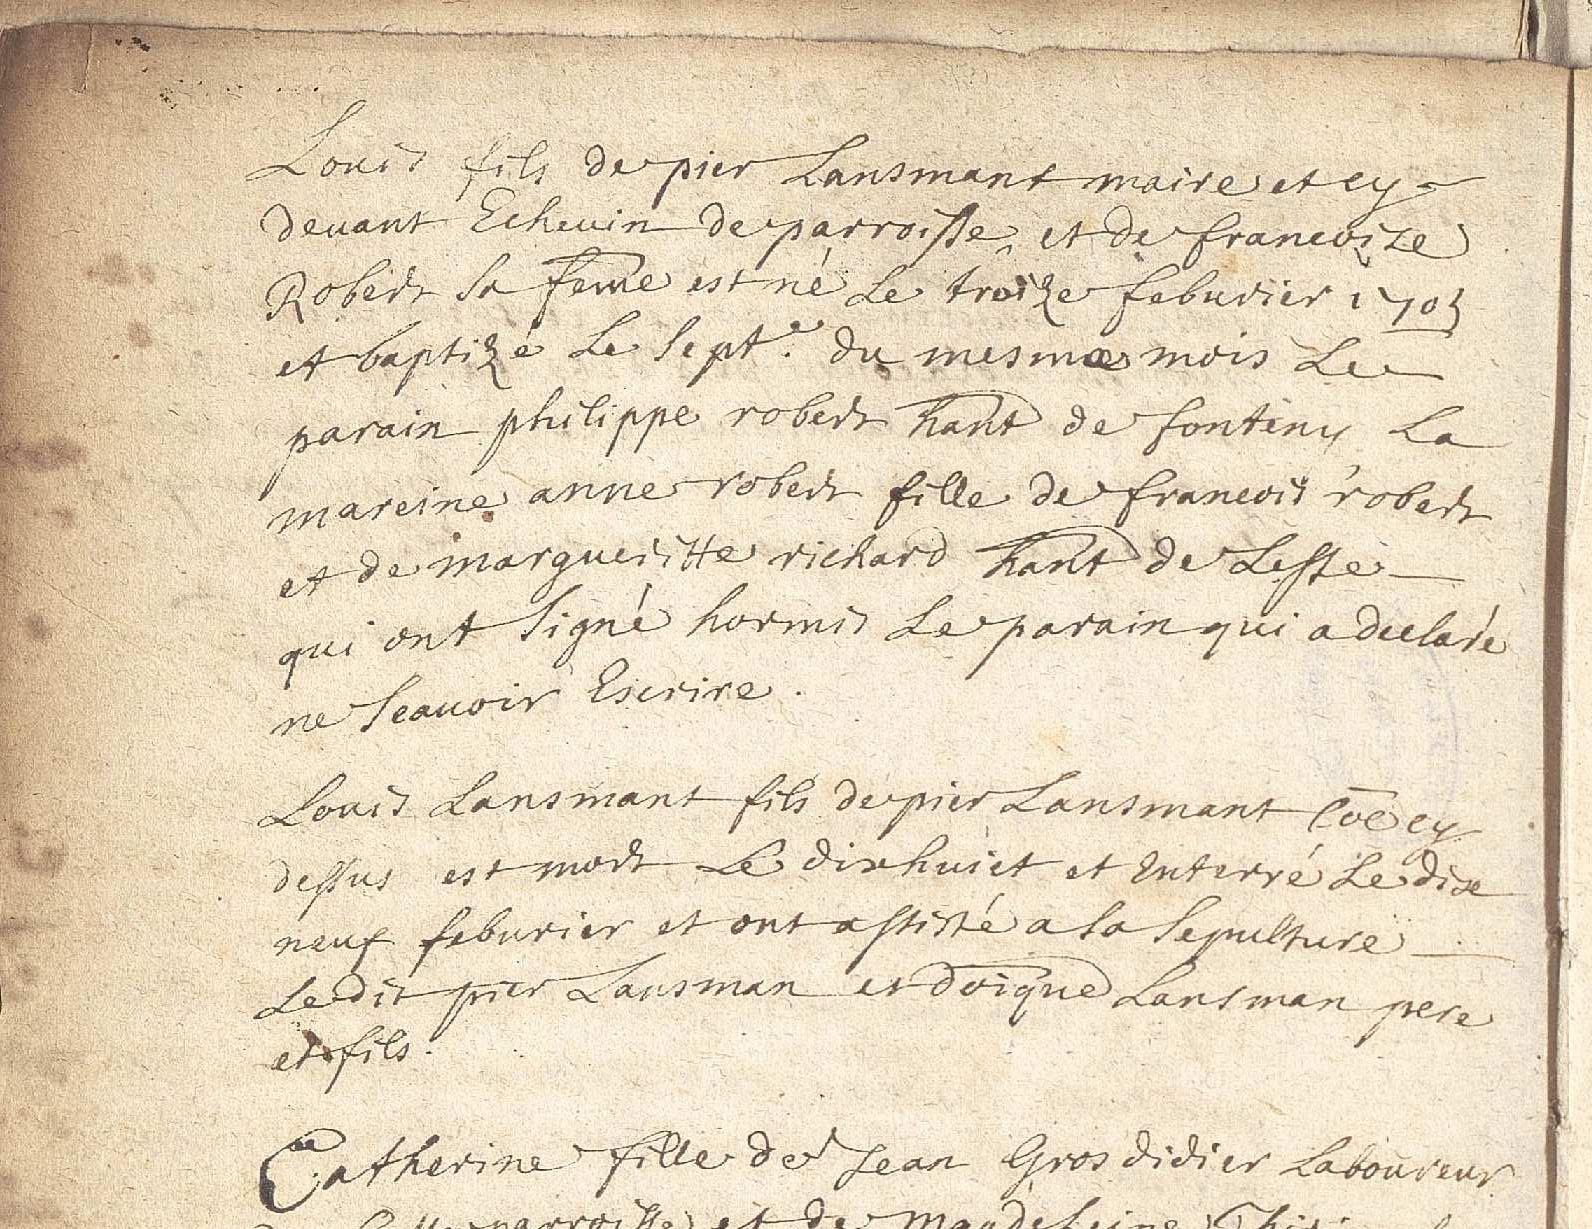 Louis fils de pier Lansmant maire et cy
devant Echevin de parroisse, et de francoize
Robert sa feme est né Le troize feburier 1703
et baptizé Le sept.e du mesme mois Le
parain philippe robert hant de fonteny La
mareine anne robert fille de francois robert
et de margueritte richard hant de Lesse
qui ont signé hormis Le parain qui a declaré
ne scavoir Escrire.
Louis Lansmant fils de pier Lansmant coe cy
dessus est mort Le dixhuict et Enterré Le dixe
neuf feburier et ont assisté a La sepulture
Le dit pier Lansman et doique Lansman pere
et fils.
Catherine fille de Jean Grosdidier Laboureur
parroisse et de